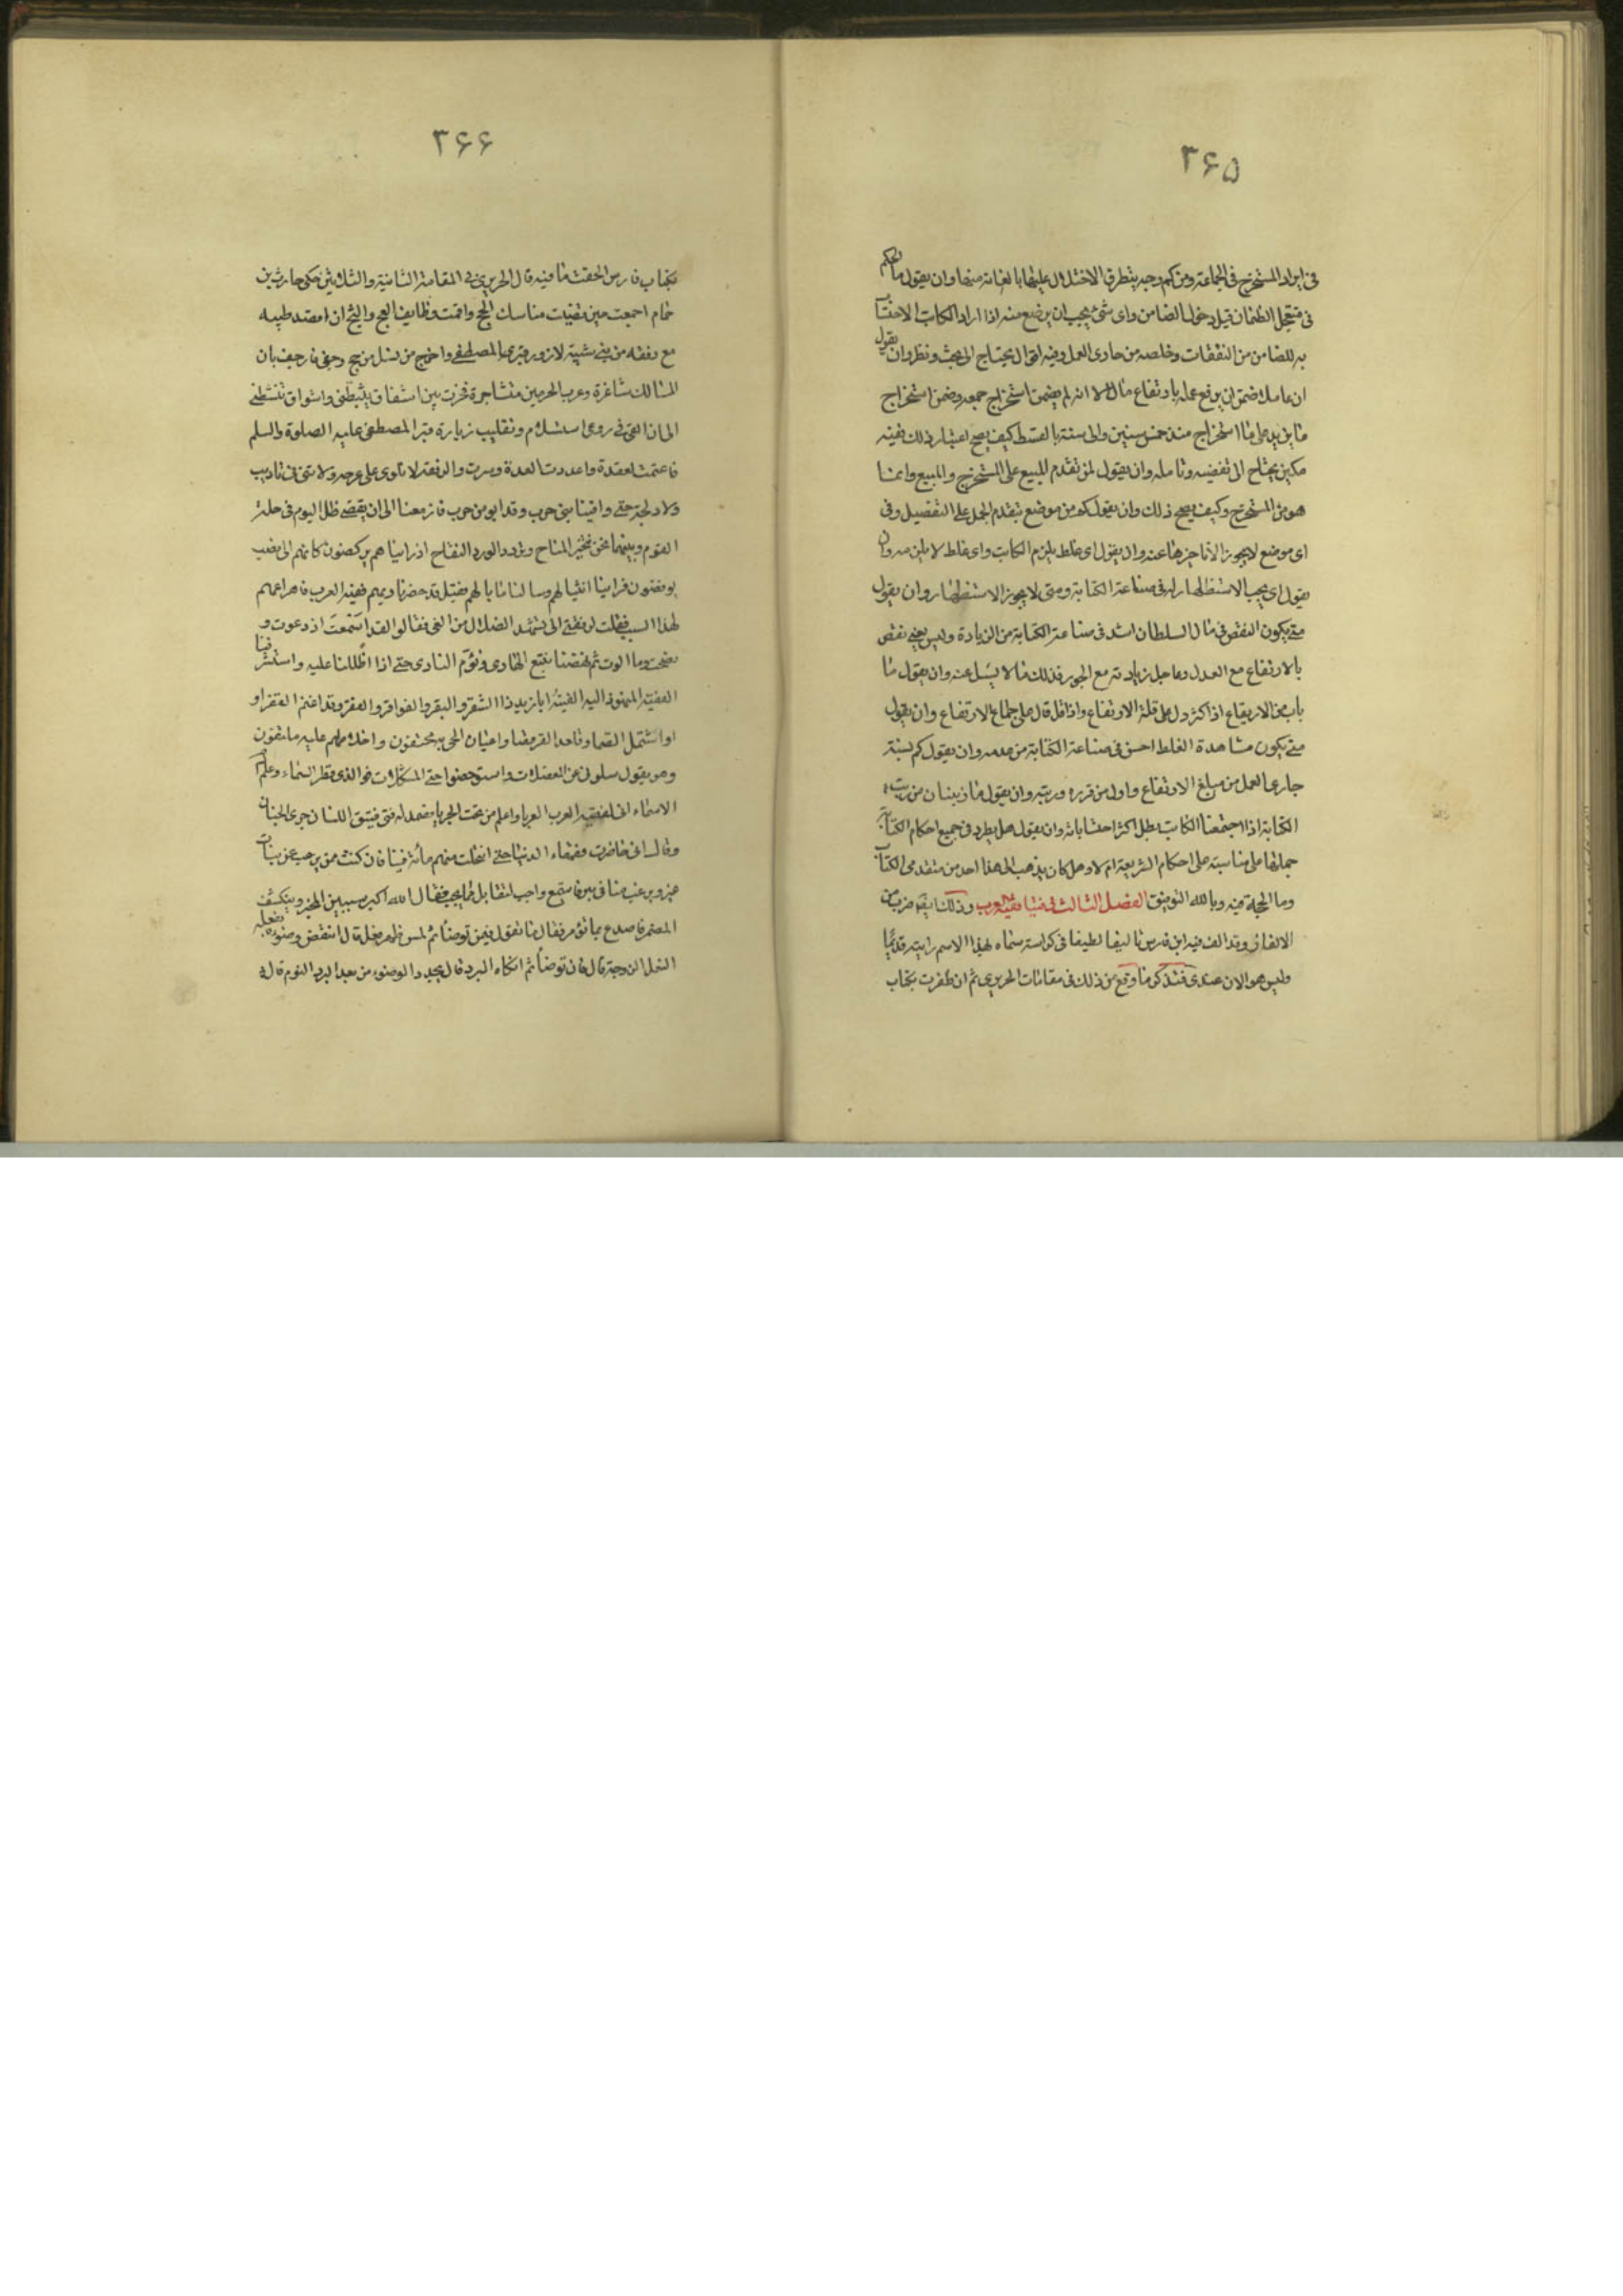 ٣۶۵
في ايراد المستخرج في الجماعة ومن كم وجه يتطرق الاختلال عليها بالغائه منها وان يقول ما الحكم
في متعجل الضمان قبل دخول الضامن واى شئ يجب ان يوضع منه اذا اراد الكاتب الاحتساب
به للضامن من النفقات وخلصه من جارى العمل وفيه اقوال يحتاج الى بحث ونظر وان يقول
ان عاملا ضمن ان يرفع عمله بارتفاع مال الا انه لم يضمن استخراج جميعه وضمن استخراج
ما يزيد على ما استخراج منذ خمس سنين والى سنته بالقسط كيف يصح اعتبار ذلك ففيه
كمين يحتاج الى تقضيه وتأمله وان يقول لم نقدم المبيع على المستخرج والمبيع وانما
هو من المستخرج وكيف يصح ذلك وان يقول كم من موضع تتقدم الجمل على التفصيل وفى
اى موضع لا يجوز الا تاخيرها عنه وان يقول اى غلط يلزم الكاتب واى غلط لا يلزمه وان
يقول اى يجب الاستظهار له في صناعة الكتابة ومتى لا يجوز الاستظهار وان يقول
متى يكون النقص في مال السلطان اشد فى صناعة الكتابة من الزيادة وليس يعنى نقص
بالارتفاع مع العدل وعاجل زيادته مع الجور فذلك ما لا يسئل عنه وان يقول ما
باب من الارتفاع اذا كثر دل على قلة الارتفاع واذا قل دل على جماع الارتفاع وان يقول
متى يكون مشاهدة الغلط احسن في صناعة الكتابة من عدمه وان يقول كم نسبة
جارى العمل من مبلغ الارتفاع واول من قرره ورتبه وان يقول
الكتابة اذا اجتمعنا الكاتب بطل اكثر احتسابات وان يقول هل يطرد في جميع احكام الكتابة
حملتها على مناسبة على احكام الشريعة ام لا وهل كان يذهب الى هذا احد من متقدمى الكتاب
وما الحجة فيه وبالله التوفيق الفصل الثالث في فتيا فقيه العرب وذلك ايضا ضرب من
الالغاز وقد الف فيه ابن فارس تاليفا لطيفا في كراسة سماه بهذا الاسم رايته قديما
وليس هو الان عندى فنذكر ما وقع من ذلك في مقامات الحريرى ثم ان ظفرت بكتاب
٣۶۶
بكتاب فارس الحقت ما فيه قال الحريرى في المقامة الثانية والثلاثين حكى حارث بن
همام اجمعت حين قضيت مناسك الحج واقمت وظايف العج والثج ان اقصد طيبه
مع رفقه من بنى شيبة لازور قبر المصطفى واخرج من قبيل من حج وجفى فارجف بان
المسالك شاغرة وعرب الحرمين متشاجرة فحرت بين اشفاق يثبطنى واشواق تنشطنى
الى ان القى في روعى استسلام وتغليب زيارة قبر المصطفى عليه الصلوة والسلم
فاعتمت لعقدة واعددت العدة وسرت والرفقة لا نلوى على عرجة ولا نني فى تاديب
ولا دلجة حتى وافينا بنى حرب وقد ابوا من حرب فازمعنا الى ان نقضى ظل اليوم في حلة
القوم وبينما نحن نتخير المناخ ونرود الورد النقاخ اذ راينا هم يركضون كانهم الى نصب
يوفضون فرابنا انثيالهم وسالنا ما بالهم فقيل قد حضر ناديهم فقيه العرب فاهراعهم
لهذا السبب فقلت لرفقتى الا نشهد الضلال من الغى فقالوا لقد اسمعت اذ دعوت و
نصحت وما الوت ثم نهضنا نتبع الهادى ونؤم النادى حتى اذا اظللنا عليه واستشرفنا
الفقيه المنهود اليه الفيته ابا زيد ذا الشقر والبقر والفواقر والفقر وقد اعتم القفدا و
او اشتمل الصماء وقعد القرفصا واعيان الحى به محتفون واخلاطهم عليه ملتفون
وهو يقول سلونى عن المعضلات واستوضحوا حتى المشكلات فوالذى فطر السماء وعلم
الاسماء انى لفقيه العرب العربا واعلم من تحت الجربا فصمد له فتى فتيق اللسان جرى الجنان
وقال انى حاضرت فقهاء الدنيا حتى انتخلت منهم مأئة فتيا فان كنت ممن يرغب عن بنات
غير ويرغب منا في مير فاستمع واجب لتقابل بما يجب فقال الله اكبر سيبين المخبر وينكشف
المضمر فاصدع بما تؤمر فقال ما تقول فيمن توضأ ثم لمس ظهر نعله قال انتقض وضوءه بفعله
النعل الزوجة قال فان توضأ ثم اتكاه البرد قال يجدد الوضوء من بعد البرد النوم قال